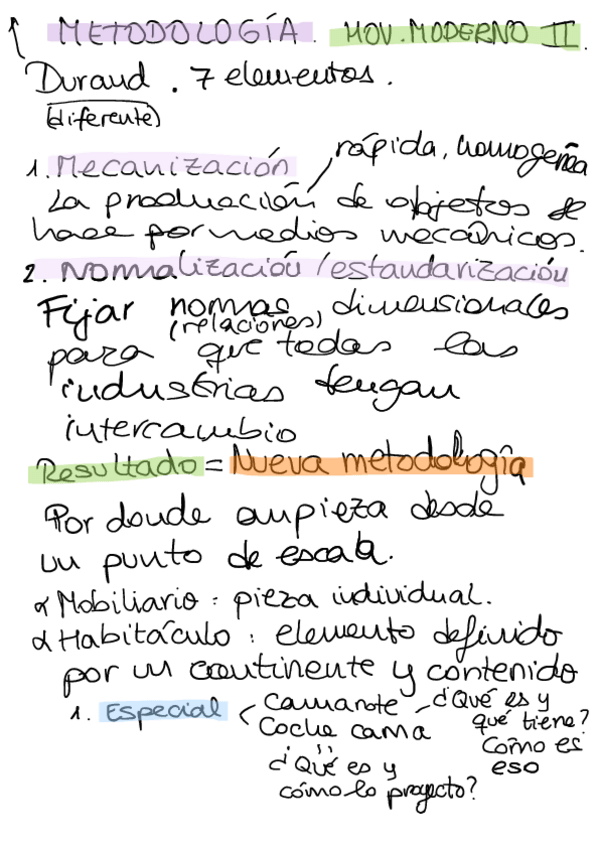 METODOLOGÍA. MOV. MODERNO II.
Durand. 7 elementos.
(diferente)
1. Mecanización
rápida, homogenea
La producción de objetos se
hace por medios mecánicos.
2. Normalización/estandarización
Fijar normas dimensionales
(relaciones)
para que todas las
industrias tengan
intercambio
Resultado = Nueva metodología
Por donde empieza desde
un punto de escala.
α Mobiliario: pieza individual.
α Habitáculo: elemento definido
por un continente y contenido
1. Especial < Camarote - ¿Qué es y
Coche cama qué tiene?
Cómo es
¿Qué es y eso
cómo lo proyecto?